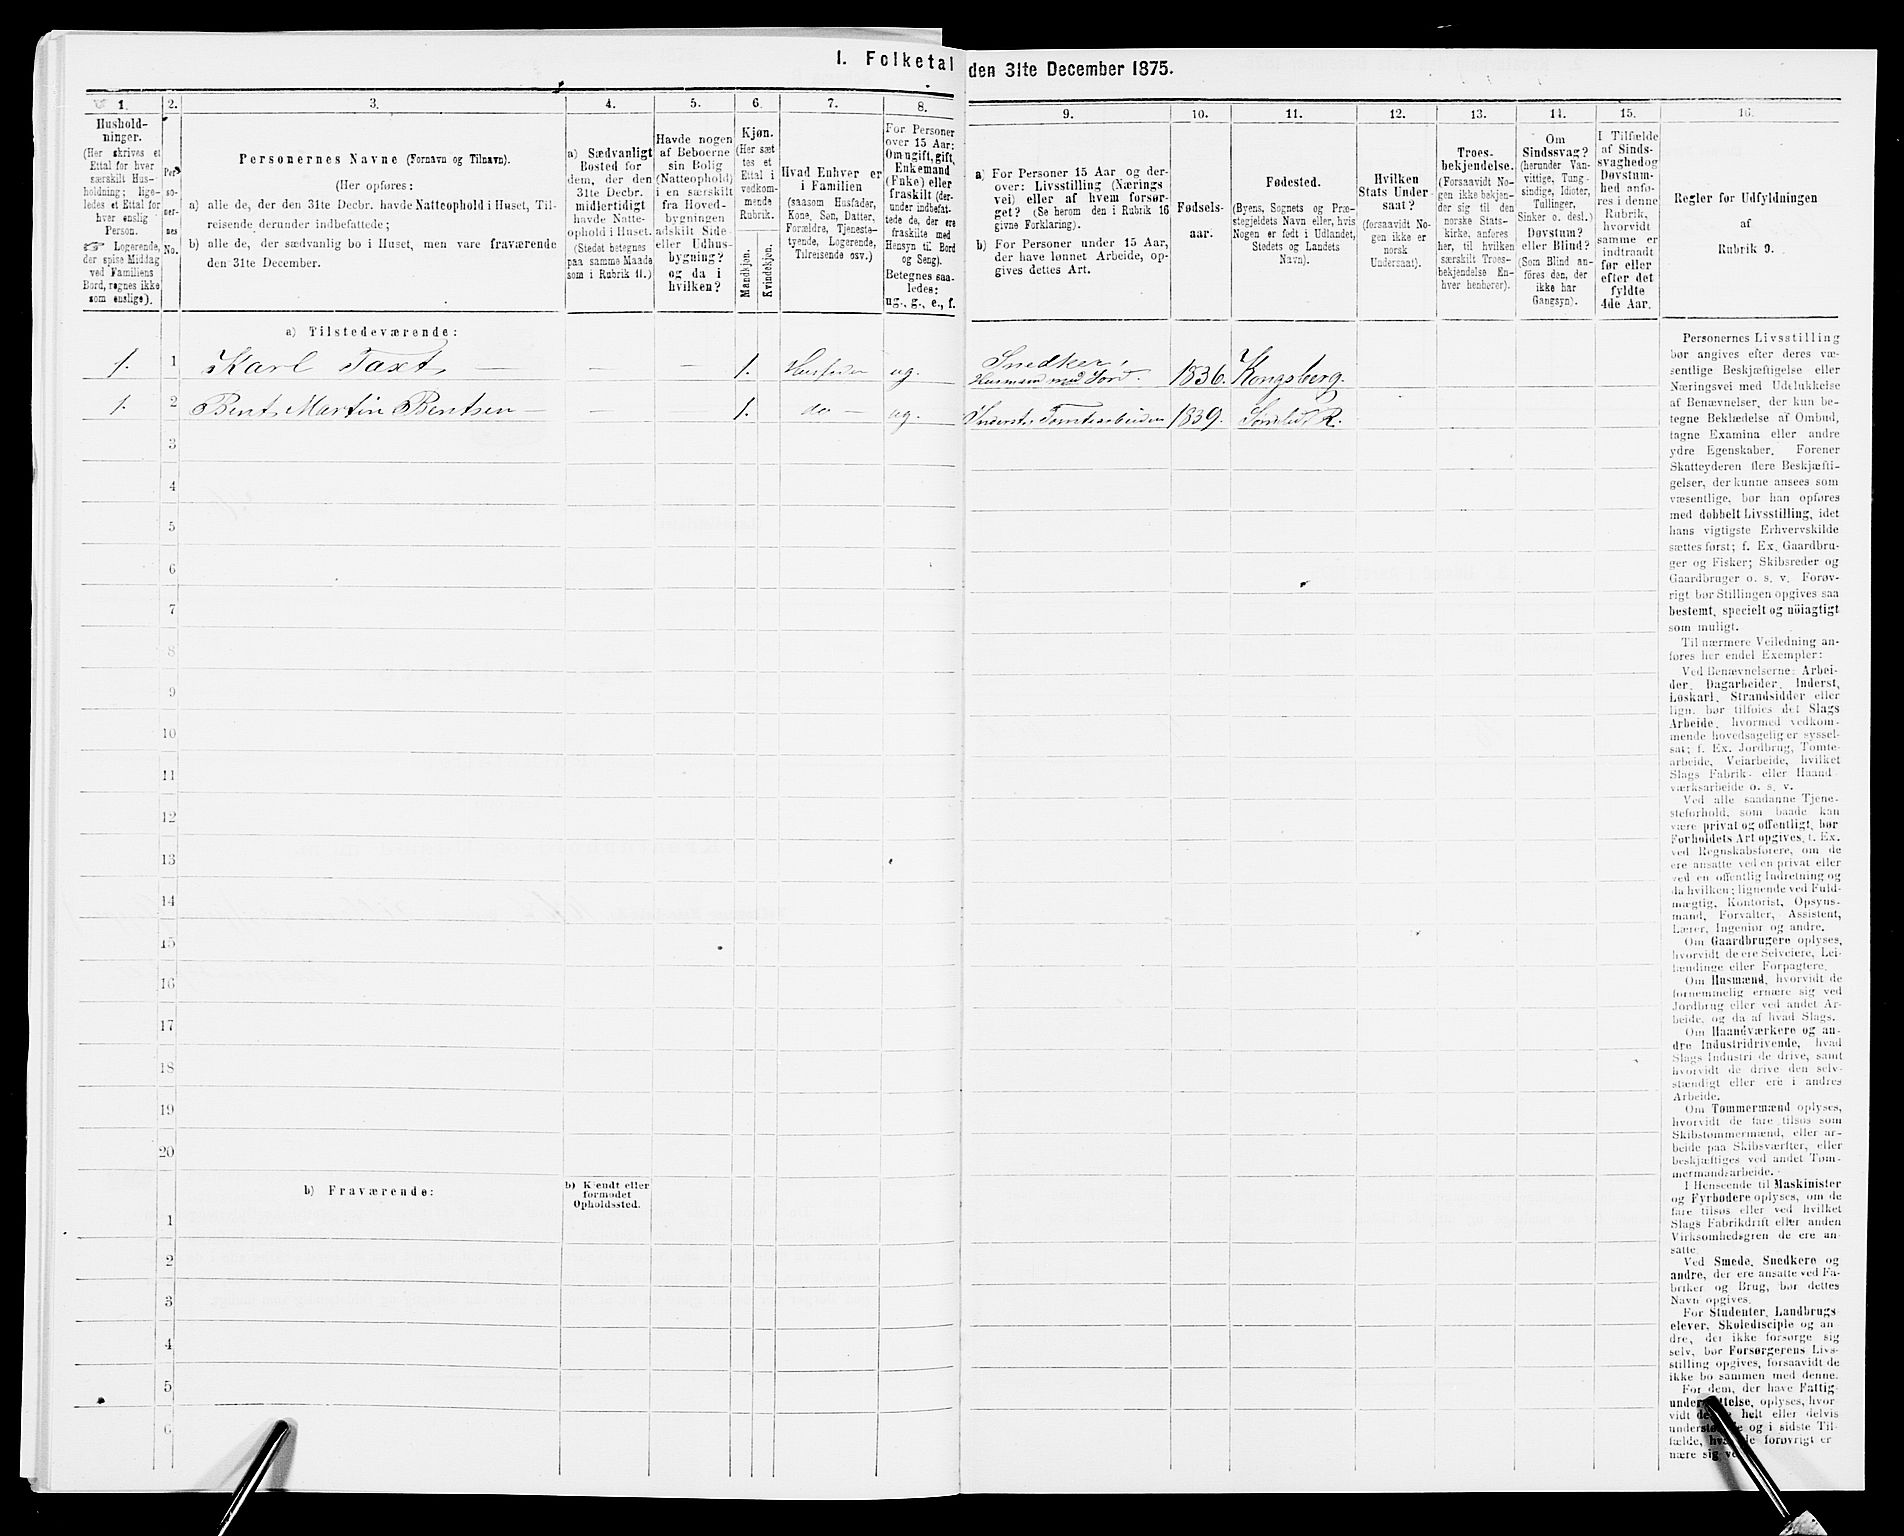 I. Folketal den 31te December 1875.
1.
Hushold-
ninger.
(Her skrives et
Ettal for hver
særskilt Hus-
holdning; lige-
ledes et Ettal for
hver enslig
Person.
☞ Logerende,
der spise Middag
ved Familiens
Bord, regnes ikke
som enslige).
2.
Per-
so-
ner-
nes
No.
3.
Personernes Navne (Fornavn og Tilnavn).
(Her opføres:
a) alle de, der den 31te Decbr. havde Natteophold i Huset, Til-
reisende derunder indbefattede;
b) alle de, der sædvanlig bo i Huset, men vare fraværende
den 31te December.
4.
a) Sædvanligt
Bosted for
dem, der den
31te Decbr.
midlertidigt
havde Natte-
ophold i Huset.
(Stedet betegnes
paa samme Maade
som i Rubrik 11.)
5.
Havde nogen
af Beboerne
sin Bolig
(Natteophold)
i en særskilt
fra Hoved-
bygningen
adskilt Side-
eller Udhus-
bygning?
og da i
hvilken?
6.
Kjøn.
(Her sæt-
tes et
Ettal i
vedkom-
mende
Rubrik.
Mandkjøn.
Kvindekjøn.
7.
Hvad Enhver er
i Familien
(saasom Husfader,
Kone, Søn, Datter,
Forældre, Tjeneste-
tyende, Logerende,
Tilreisende osv.)
8.
For Personer
over 15 Aar:
Om ugift, gift,
Enkemand
(Enke) eller
fraskilt (der-
under indbefat-
tede de, der ere
fraskilte med
Hensyn til Bord
og Seng).
Betegnes saa-
ledes:
ug., g., e., f.
9.
a) For Personer 15 Aar og der-
over: Livsstilling (Nærings
vei) eller af hvem forsør-
get? (Se herom den i Rubrik 16
givne Forklaring).
b) For Personer under 15 Aar,
der have lønnet Arbeide, op-
gives dettes Art.
10.
Fødsels-
aar.
11.
Fødested.
(Byens, Sognets og Præ-
stegjeldets Navn eller, hvis
Nogen er født i Udlandet,
Stedets og Landets
Navn).
12.
Hvilken
Stats Under-
saat?
(forsaavidt No-
gen ikke er
norsk
Undersaat).
13.
Troes-
bekjendelse.
(Forsaavidt No-
gen ikke bekjen-
der sig til den
norske Stats-
kirke, anføres
her, til hvilken
særskilt Troes-
bekjendelse En-
hver henhører).
14.
Om
Sindssvag?
(herunder Van-
vittige, Tung-
sindige, Idioter,
Tullinger,
Sinker o. desl.)
Døvstum?
eller Blind?
(Som Blind an-
føres den, der
ikke har
Gangsyn).
15.
I Tilfælde
af Sinds-
svaghed og
Døvstum-
hed anfø-
res i denne
Rubrik,
hvorvidt
samme er
indtraadt
før eller
efter det
fyldte
4de Aar.
16.
Regler for Udfyldningen
af
Rubrik 9.
a) Tilstedeværende:
1. 1 Karl Taxt, — — — 1. Husfader ug. Snedker, Husmand med Jord. 1836. Kongsberg.
1. 2 Bent Martin Bentsen — — 1. do — ug. Inderst, Tomtearbeider 1839.
3
4
5
6
7
8
9
10
11
12
13
14
15
16
17
18
19
20
b) Fraværende:
b) Kjendt eller
formodet
Opholdssted.
1
2
3
4
5
6
Personernes Livsstilling
bør angives efter deres væ-
sentlige Beskjæftigelse eller
Næringsvei med Udelukkelse
af Benævnelser, der kun be-
tegne Beklædelse af Ombud,
tagne Examina eller andre
ydre Egenskaber. Forener
Skatteyderen flere Beskjæfti-
gelser, der kunne ansees som
væsentlige, bør han opføres
med dobbelt Livsstilling, idet
hans vigtigste Erhvervskilde
sættes først; f. Ex. Gaardbru-
ger og Fisker; Skibsreder og
Gaardbruger o. s. v. Forøv-
rigt bør Stillingen opgives saa
bestemt, specielt og nöiagtigt
som muligt.
Til nærmere Veiledning an-
føres her endel Exempler:
Ved Benævnelserne: Arbei-
der, Dagarbeider, Inderst,
Løskarl, Strandsidder eller
lign. bør tilføies det Slags
Arbeide, hvormed vedkom-
mende hovedsagelig er syssel-
sat; f. Ex. Jordbrug, Tomte-
arbeide, Veiarbeide, hvilket
Slags Fabrik- eller Haand-
værksarbeide o. s. v.
Ved alle saadanne Tjene-
steforhold, som baade kan
være privat og offentligt, bør
Forholdets Art opgives, f. Ex.
ved Regnskabsførere, om de
ere ansatte ved en privat eller
ved en offentlig Indretning og
da hvilken; lignende ved Fuld-
mægtig, Kontorist, Opsyns-
mand, Forvalter, Assistent,
Lærer, Ingeniør og andre.
Om Gaardbrugere oplyses,
hvorvidt de ere Selveiere, Lei-
lændinge eller Forpagtere.
Om Husmænd, hvorvidt de
fornemmelig ernære sig ved
Jordbrug eller ved andet Ar-
beide, og da af hvad Slags.
Om Haandværkere og an-
dre Industridrivende, hvad
Slags Industri de drive, samt
hvorvidt de drive den selv-
stændigt eller ere i andres
Arbeide.
Om Tømmermænd oplyses,
hvorvidt de fare tilsøs som
Skibstømmermænd, eller ar-
beide paa Skibsværfter, eller
beskjæftiges ved andet Tøm-
mermandsarbeide.
I Henseende til Maskinister
og Fyrbødere oplyses, om de
fare tilsøs eller ved hvilket
Slags Fabrikdrift eller anden
Virksomhedsgren de ere an-
satte.
Ved Smede, Snedkere og
andre, der ere ansatte ved Fa-
briker og Brug, bør dettes
Navn opgives.
For Studenter, Landbrugs-
elever, Skoledisciple og an-
dre, der ikke forsørge sig
selv, bør Forsørgerens Livs-
stilling opgives, forsaavidt de
ikke bo sammen med denne.
For dem, der have Fattig-
understøttelse, oplyses, hvor-
vidt de helt eller delvis
understøttede og i sidste Til-
fælde, forøvrigt er-
nære sig